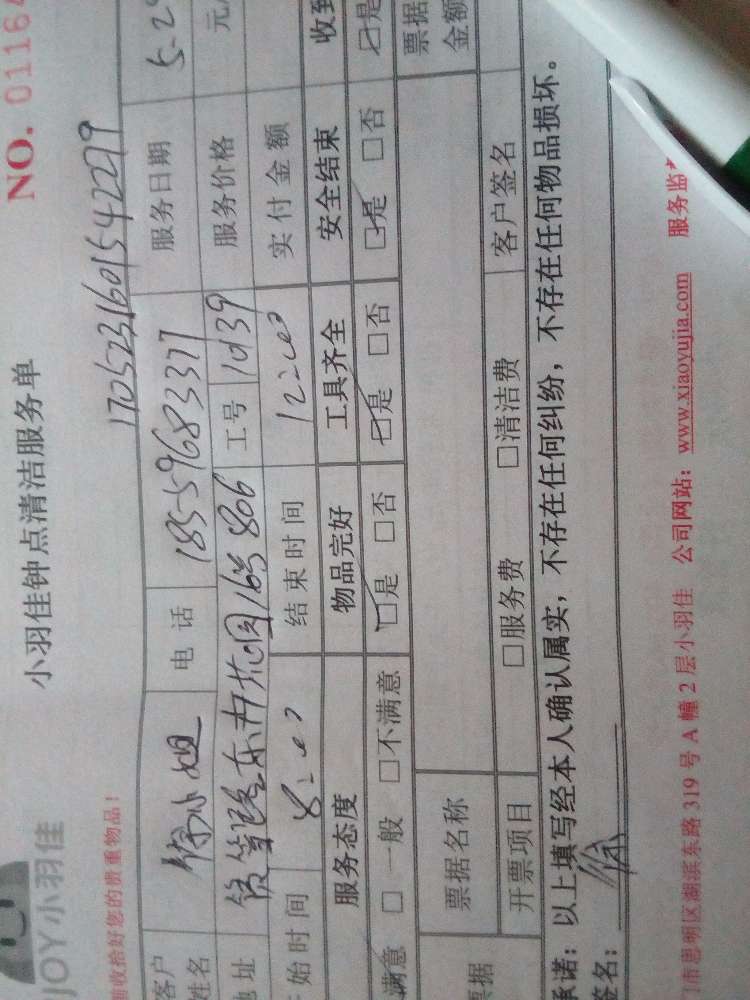 JOY小羽佳
小羽佳钟点清洁服务单
NO. 01164
收拾好您的贵重物品!
1705231601542279
客户姓名 徐小姐 电话 18559683377 服务日期 5.2
地址 16号806 工号 1039 服务价格 元/
始时间 8:00 结束时间 12:00 实付金额
服务态度 物品完好 工具齐全 安全结束 收到
满意 □一般 □不满意 □是 □否 □是 □否 □是 □否 □是
票据 票据名称 票据金额
开票项目 □服务费 □清洁费 客户签名
承诺：以上填写经本人确认属实，不存在任何纠纷，不存在任何物品损坏。
签名： 徐
门市思明区湖滨东路 319 号 A 幢 2 层小羽佳 公司网站：www.xiaoyujia.com 服务监